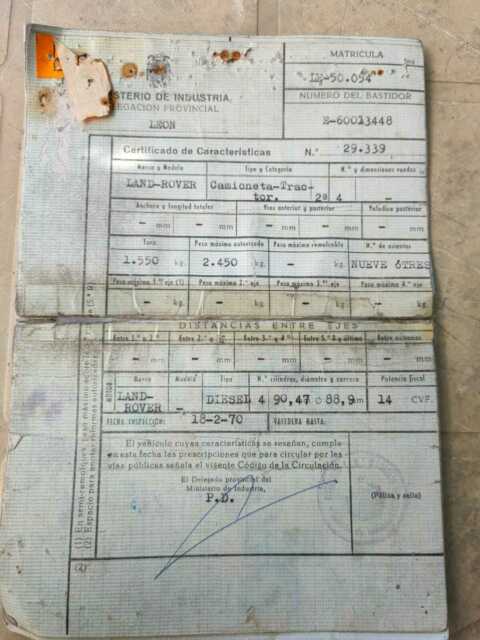 MATRICULA
LE-50.054
NUMERO DEL BASTIDOR
E-60013448
MINISTERIO DE INDUSTRIA
DELEGACION PROVINCIAL
LEON
Certificado de Características N.° 29.339
Marca y Modelo
Tipo y Categoría
N.° y dimensiones ruedas
LAND-ROVER
Camioneta-Trac-
tor. 2ª
4 -
Anchura y longitud totales
Vías anterior y posterior
Voladizo posterior
- mm - mm - mm - mm - mm
Tara
Peso máximo autorizado
Peso máximo remolcable
N.° de asientos
1.550 kg.
2.450 kg.
- kg.
NUEVE ótRES
Peso máximo 1.er eje (1)
Peso máximo 2.° eje
Peso máximo 3.er eje
Peso máximo 4.° eje
- kg. - kg. - kg. - kg.
DISTANCIAS ENTRE EJES
Entre 1.° y 2.°
Entre 2.° y 3.°
Entre 3.° y 4.°
Entre 5.° y último
Entre extremos
- mm - mm - mm - mm - mm
MOTOR
Marca
Modelo
Tipo
N.° cilindros, diámetro y carrera
Potencia fiscal
LAND-
ROVER
-
DIESEL
4 90,47 o 88,9 m
14 CVF.
FECHA INSPECCION: 18-2-70
VALEDERA HASTA:
El vehículo cuyas características se reseñan, cumple
en esta fecha las prescripciones que para circular por las
vías públicas señala el vigente Código de la Circulación.
El Delegado provincial del
Ministerio de Industria,
P.D.
(Póliza y sello)
(2)
(1) En semi-remolques
(2) Espacio para anotar reformas autorizadas